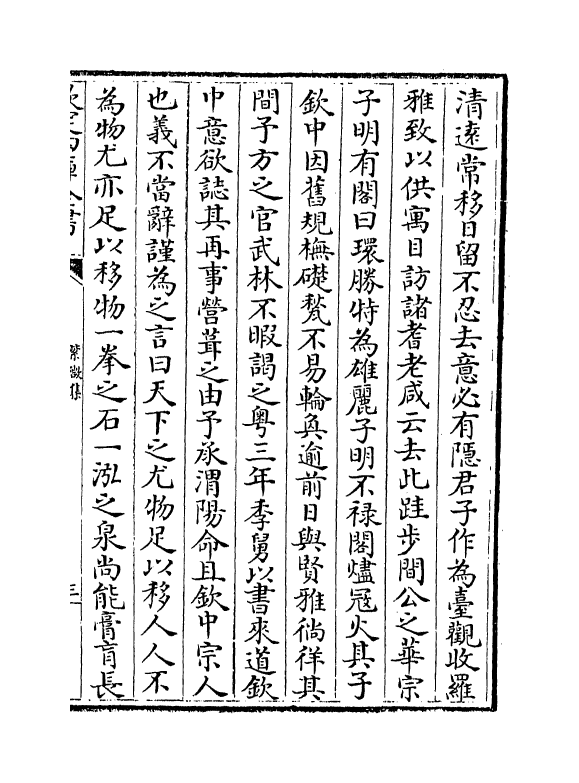 清遠常移日留不忍去意必有隱君子作為臺觀收羅
雅致以供寓目訪諸耆老咸云去此跬步間公之華宗
子明有閣曰環勝特為雄麗子明不禄閣燼冦火其子
欽中因舊規橅礎甃不易輪奐逾前日與賢雅徜徉其
間子方之官武林不暇謁之粤三年季舅以書來道欽
中意欲誌其再事營葺之由予承渭陽命且欽中宗人
也義不當辭謹為之言曰天下之尤物足以移人人不
為物尤亦足以移物一拳之石一泓之泉尚能膏肓長
欽定四庫全書
紫微集
三